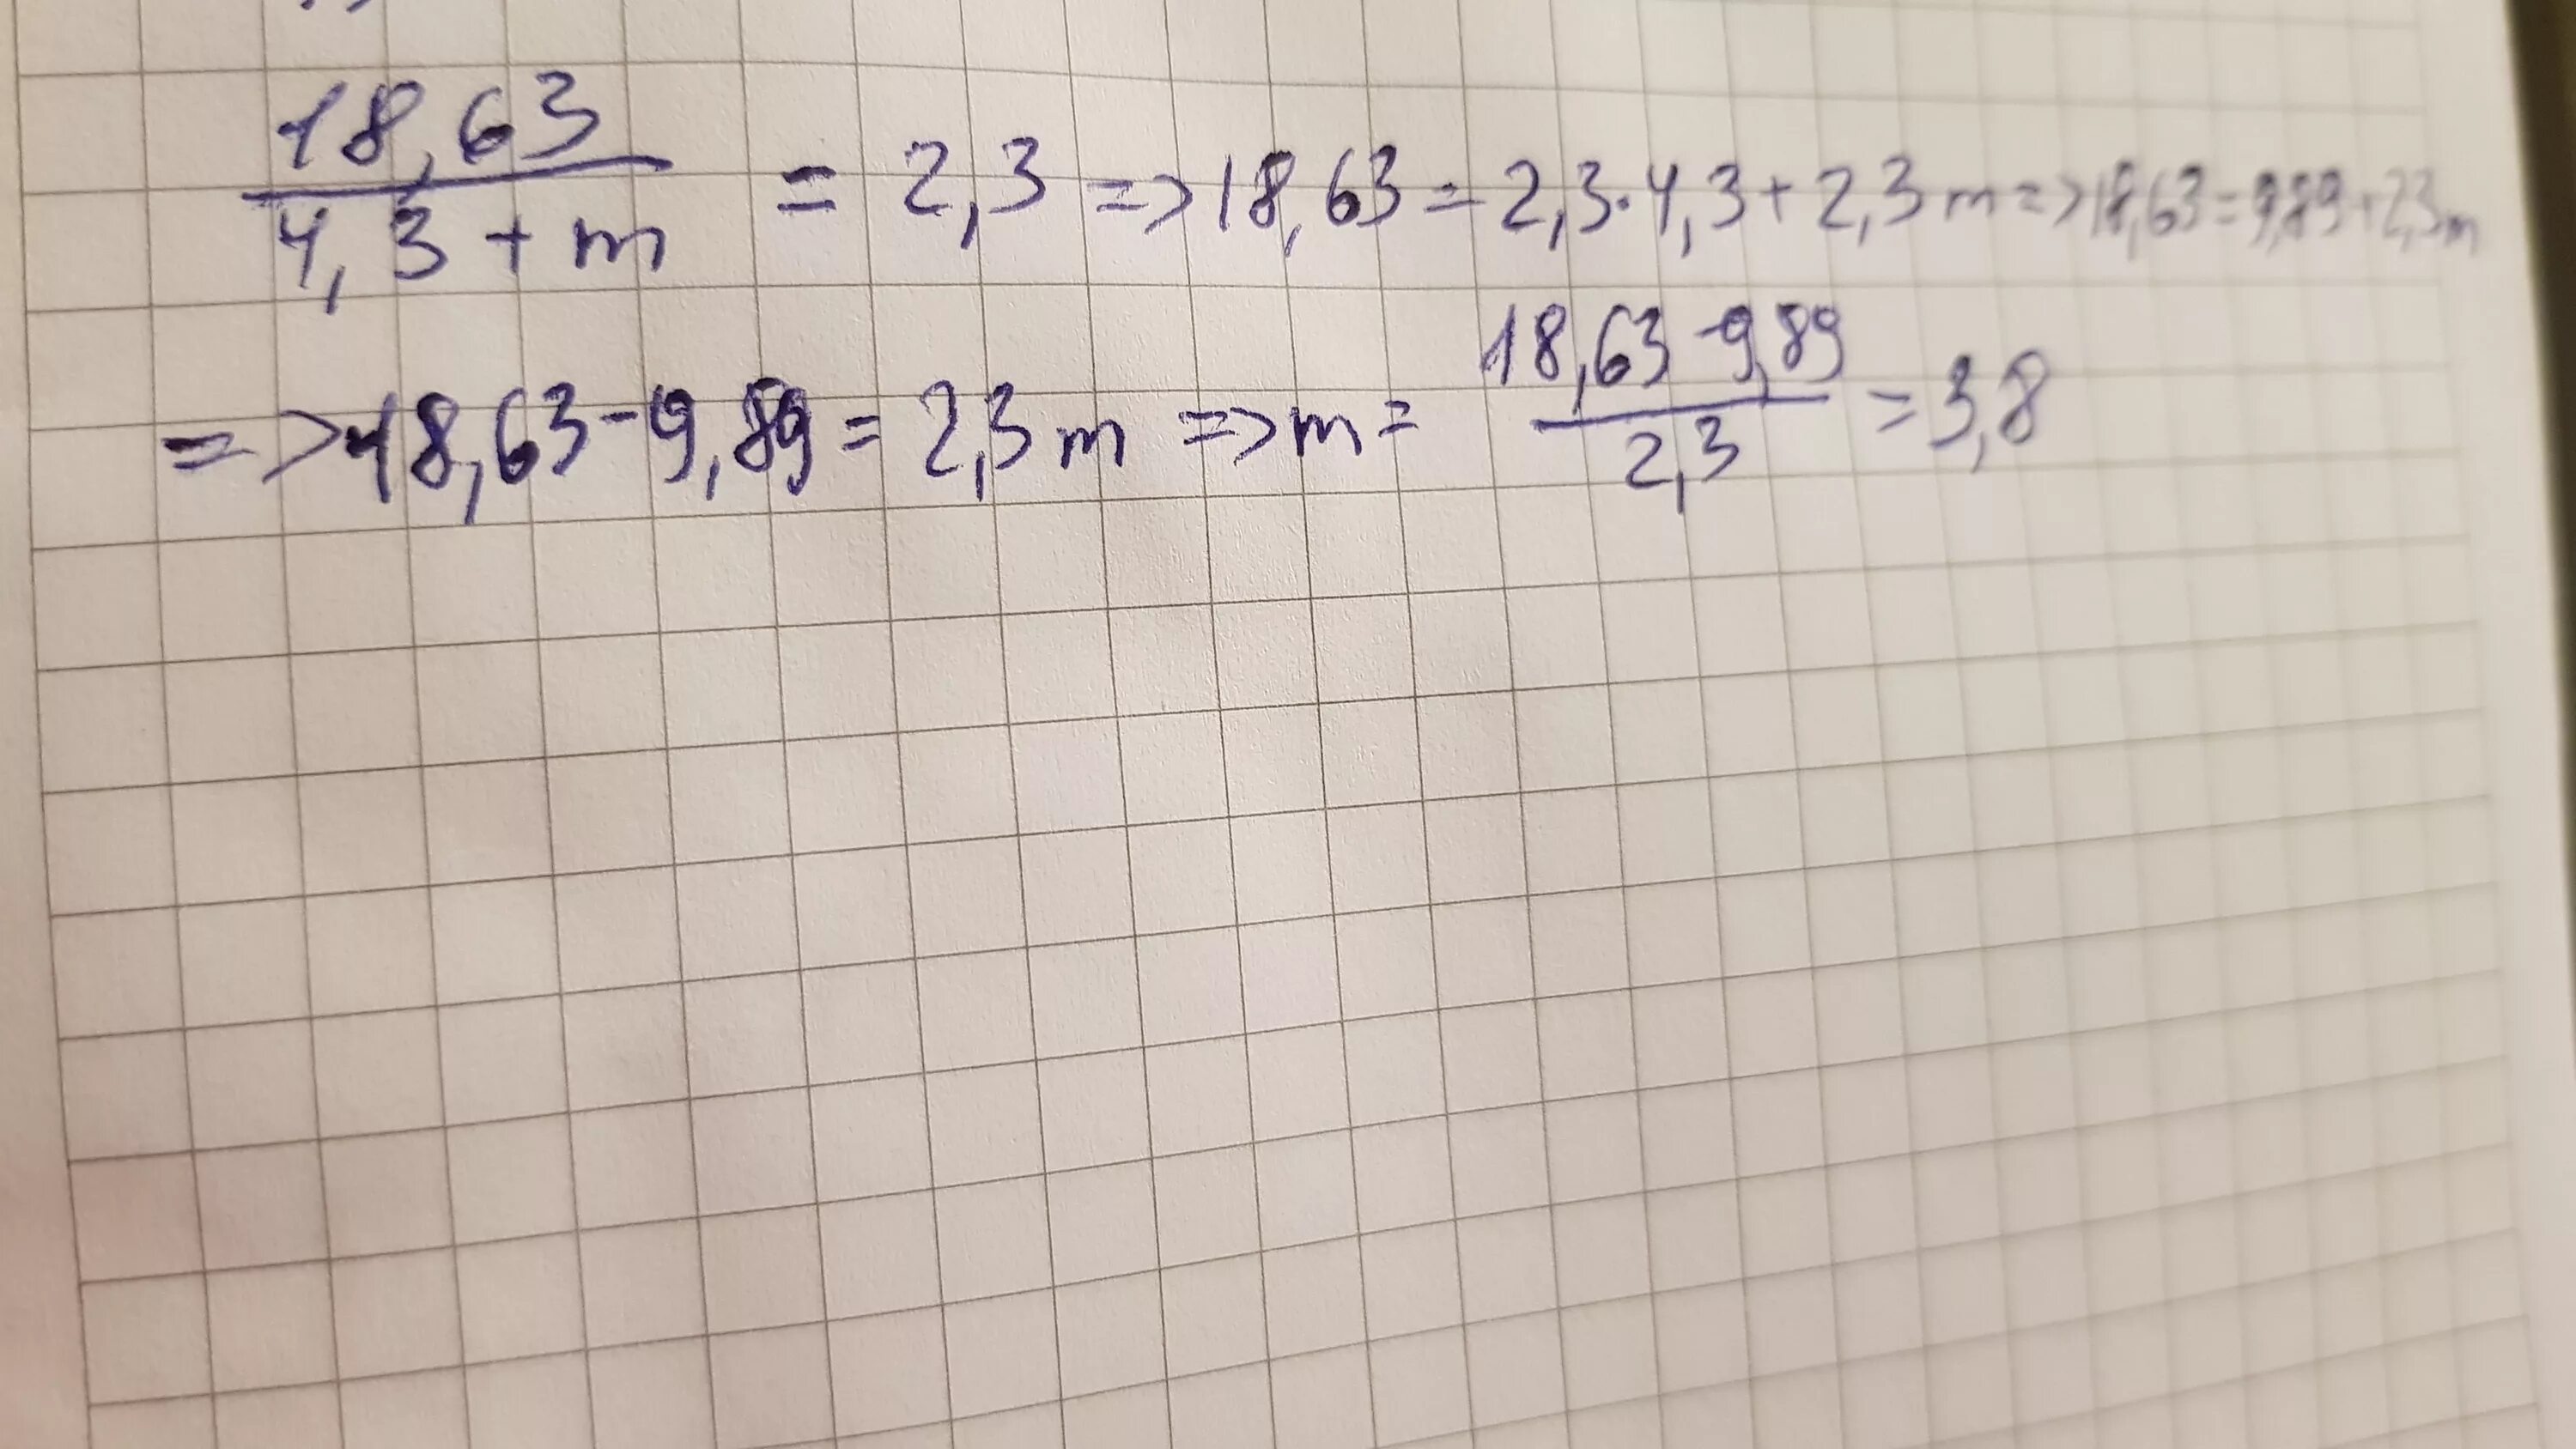 18,63
4,3 + m
= 2,3 => 18,63 = 2,3·4,3 + 2,3 m => 18,63 = 9,89 + 2,3 m
=> 18,63 - 9,89 = 2,3 m => m =
18,63 - 9,89
2,3
= 3,8